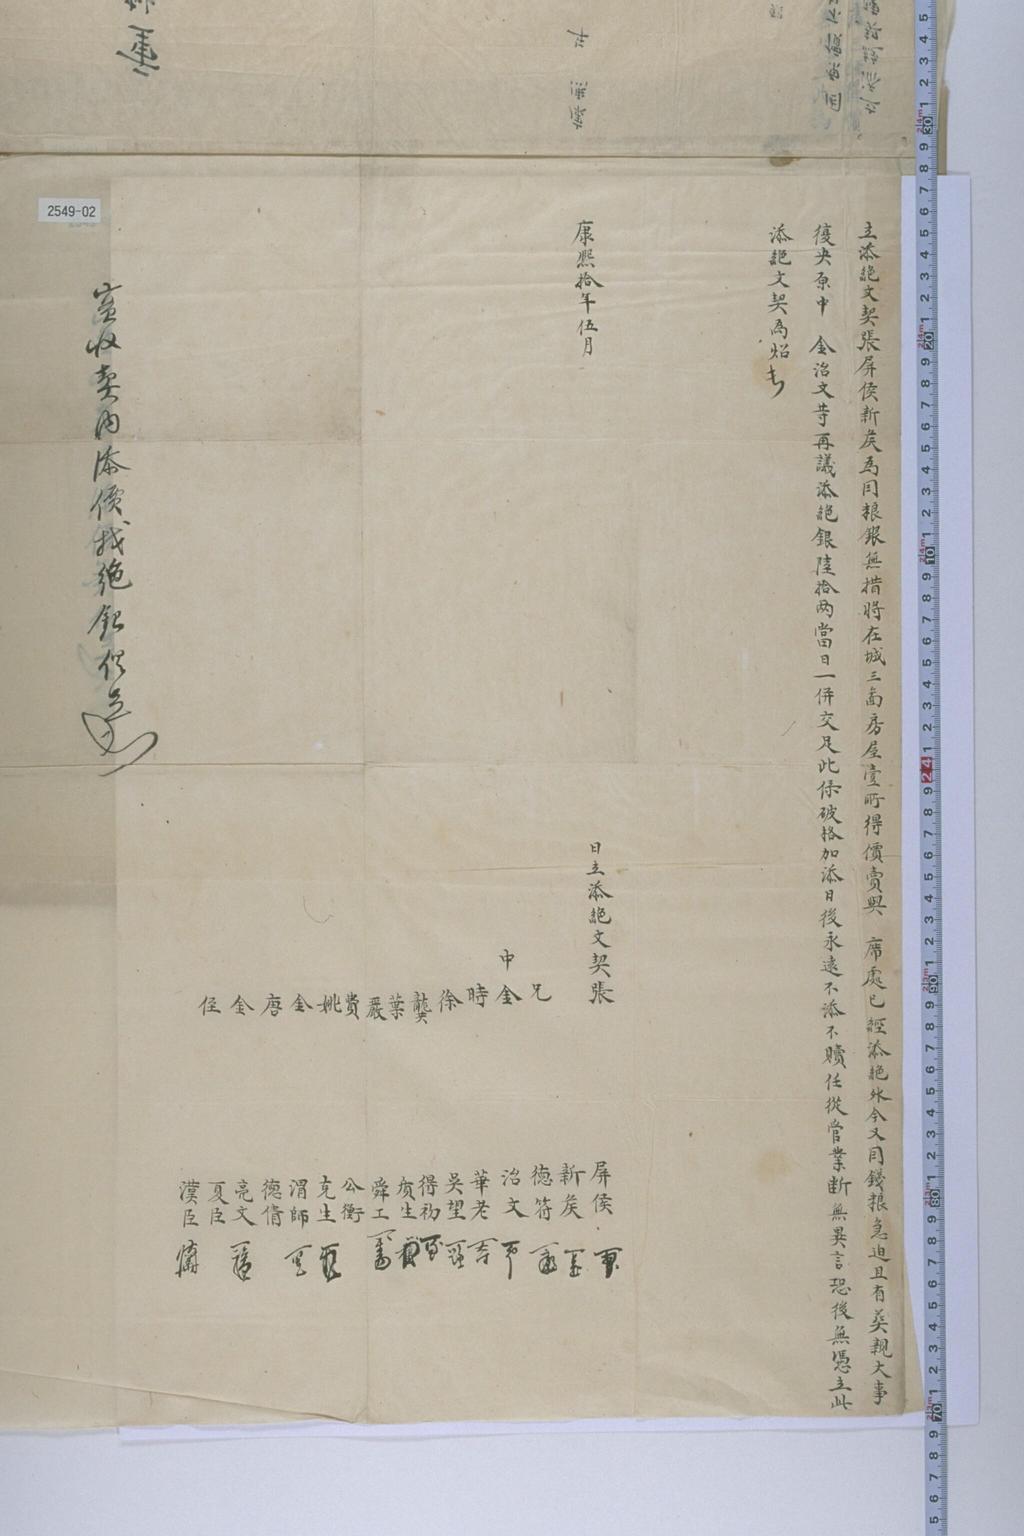 立添絶文契張屏侯新矦為因粮銀無措將在城三啚房屋壹所得價賣與 席處已經添絶外今又因錢粮急迫且有葬親大事
復央原中 金治文等再議添絶銀陸拾両當日一併交足此係破格加添日後永遠不添不贖任從管業断無異言恐後無憑立此
添絶文契為炤
康熙拾年伍月 日立添絶文契張 屏侯
新矦
兄 德符
中 金 治文
時 華老
徐 吴望
龔 得初
葉 貞生
嚴 舜工
費 公衡
姚 克生
金 渭師
唐 德脩
金 亮文
夏臣
任 漢臣
壹收契内添價找絶銀俱足
2549-02